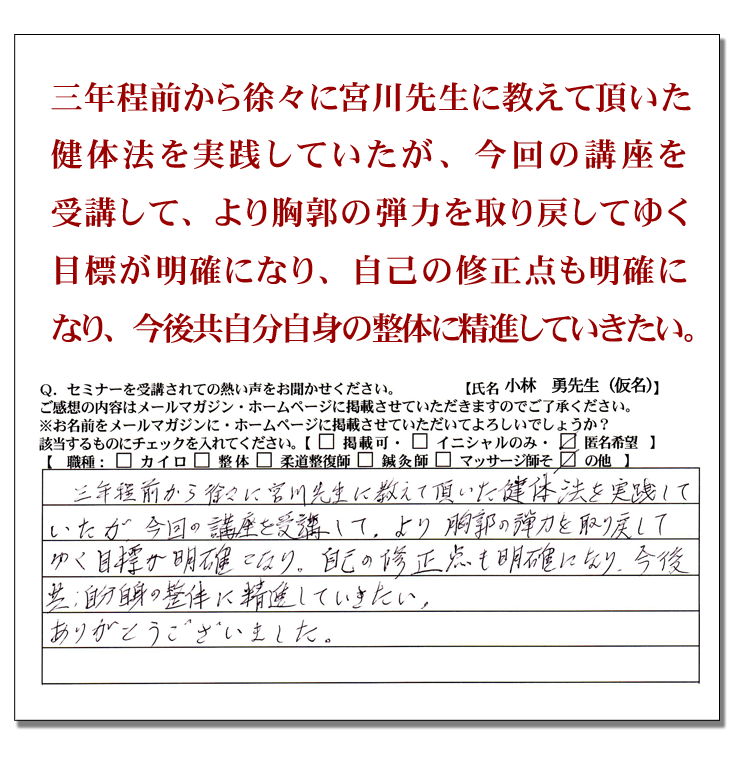 三年程前から徐々に宮川先生に教えて頂いた
健体法を実践していたが、今回の講座を
受講して、より胸郭の弾力を取り戻してゆく
目標が明確になり、自己の修正点も明確に
なり、今後共自分自身の整体に精進していきたい。
Q．セミナーを受講されての熱い声をお聞かせください。 【氏名 小林 勇先生（仮名）】
ご感想の内容はメールマガジン・ホームページに掲載させていただきますのでご了承ください。
※お名前をメールマガジンに・ホームページに掲載させていただいてよろしいでしょうか？
該当するものにチェックを入れてください。【 □ 掲載可・ □ イニシャルのみ・ ☑ 匿名希望 】
【 職種：□ カイロ □ 整体 □ 柔道整復師 □ 鍼灸師 □ マッサージ師そ ☑ の他 】
三年程前から徐々に宮川先生に教えて頂いた健体法を実践して
いたが今回の講座を受講して、より胸郭の弾力を取り戻して
ゆく目標が明確になり。自己の修正点も明確になり、今後
共、自分自身の整体に精進していきたい。
ありがとうございました。